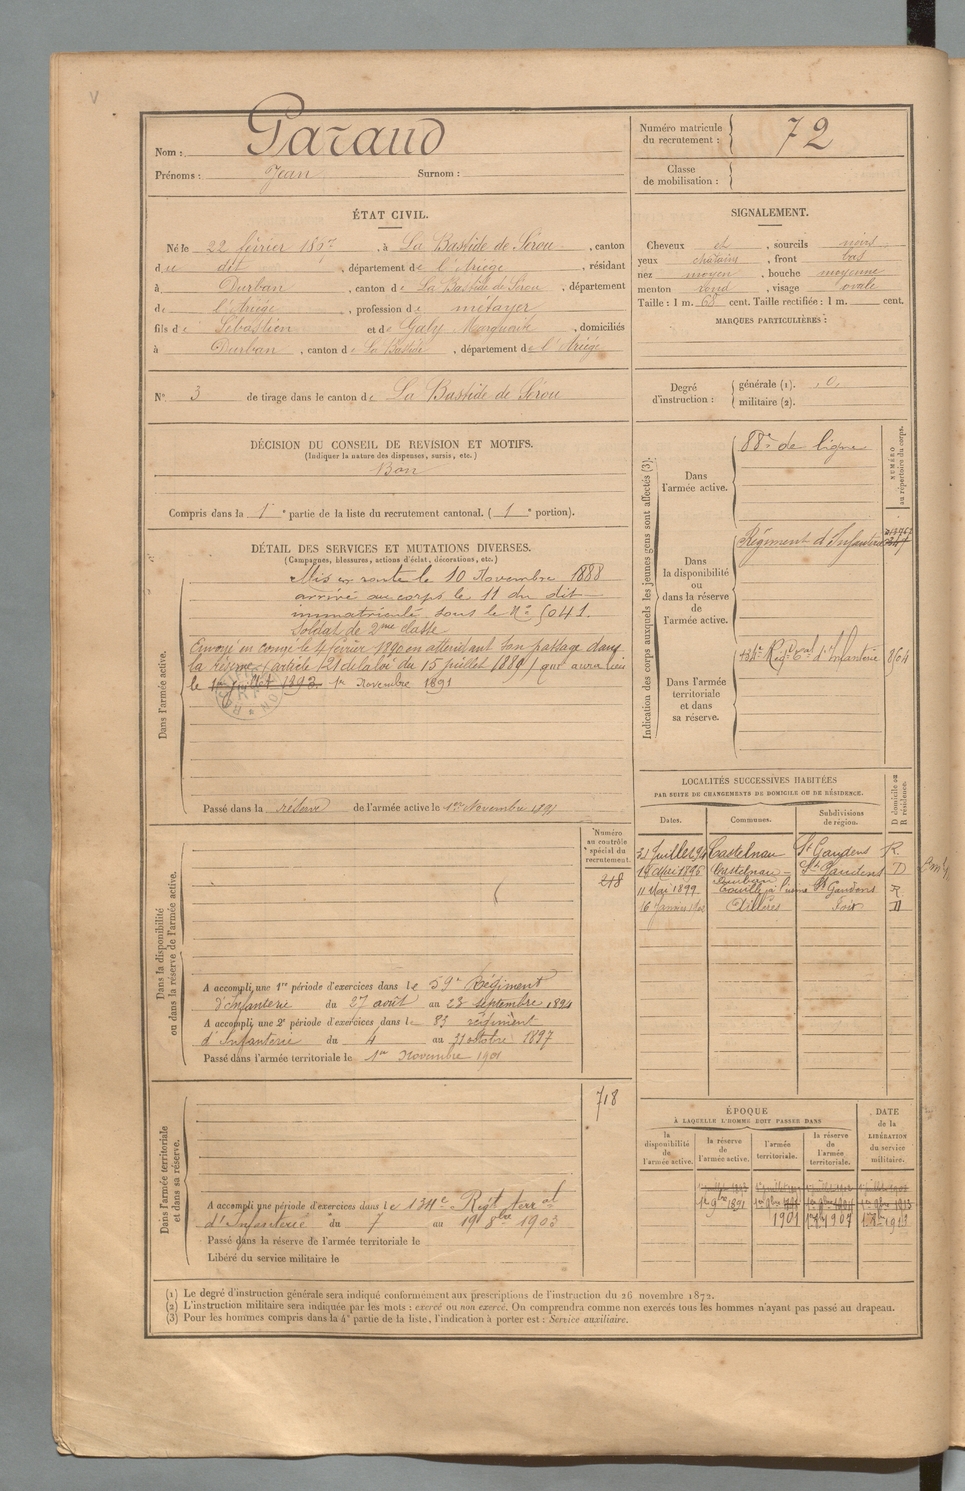 Nom : Garaud
Prénoms : Jean Surnom :
Numéro matricule du recrutement : 72
Classe de mobilisation :
ÉTAT CIVIL.
Né le 22 février 1867, à La Bastide de Sérou, canton
du dit, département de l'Ariège, résidant
à Durban, canton de La Bastide de Sérou, département
de l'Ariège, profession de métayer
fils de Sébastien et de Galy Marguerite, domiciliés
à Durban, canton de La Bastide, département de l'Ariège
N° 3 de tirage dans le canton de La Bastide de Sérou
SIGNALEMENT.
Cheveux et, sourcils noirs
yeux chatains, front bas
nez moyen, bouche moyenne
menton rond, visage ovale
Taille : 1 m. 68 cent. Taille rectifiée : 1 m. cent.
MARQUES PARTICULIÈRES :
Degré d'instruction : générale (1). 0
militaire (2).
DÉCISION DU CONSEIL DE REVISION ET MOTIFS.
(Indiquer la nature des dispenses, sursis, etc.)
Bon
Compris dans la 1e partie de la liste du recrutement cantonal. ( 1e portion).
DÉTAIL DES SERVICES ET MUTATIONS DIVERSES.
(Campagnes, blessures, actions d'éclat, décorations, etc.)
Dans l'armée active.
Mis en route le 10 Novembre 1888
arrivé au corps le 11 du dit
immatriculé sous le N° 5041.
Soldat de 2me classe
Envoyé en congé le 4 février 1890 en attendant son passage dans
la Réserve (article 21 de la loi du 15 juillet 1889) qui aura lieu
le 1er juillet 1893 1er Novembre 1891
Passé dans la réserve de l'armée active le 1er Novembre 1891
Indication des corps auxquels les jeunes gens sont affectés (3).
NUMÉRO au répertoire du corps.
Dans l'armée active.
88e de ligne
Dans la disponibilité ou dans la réserve de l'armée active.
Régiment d'Infanterie
Dans l'armée territoriale et dans sa réserve.
134e Régt Tal d'Infanterie
LOCALITÉS SUCCESSIVES HABITÉES
PAR SUITE DE CHANGEMENTS DE DOMICILE OU DE RÉSIDENCE.
Dates. Communes. Subdivisions de région. D domicile ou R résidence.
21 Juillet 94 Castelnau St Gaudens R.
19 Mai 1896 Castelnau-Durban St Gaudens D
11 Mai 1899 St Gaudens R
16 Janvier Aillères Foix D
Dans la disponibilité ou dans la réserve de l'armée active.
Numéro au contrôle spécial du recrutement.
218
A accompli une 1re période d'exercices dans le 59e Régiment
d'Infanterie du 27 août au 23 septembre 1894
A accompli une 2e période d'exercices dans le 83 régiment
d'Infanterie du 4 au 31 octobre 1897
Passé dans l'armée territoriale le 1er Novembre 1901
Dans l'armée territoriale et dans sa réserve.
718
A accompli une période d'exercices dans le 134e Régt terral
d'Infanterie du 7 au 19 8bre 1903
Passé dans la réserve de l'armée territoriale le
Libéré du service militaire le
ÉPOQUE
À LAQUELLE L'HOMME DOIT PASSER DANS
la disponibilité de l'armée active.
la réserve de l'armée active.
l'armée territoriale.
la réserve de l'armée territoriale.
DATE de la LIBÉRATION du service militaire.
1er 9bre 1891
1901 1907
(1) Le degré d'instruction générale sera indiqué conformément aux prescriptions de l'instruction du 26 novembre 1872.
(2) L'instruction militaire sera indiquée par les mots : exercé ou non exercé. On comprendra comme non exercés tous les hommes n'ayant pas passé au drapeau.
(3) Pour les hommes compris dans la 4e partie de la liste, l'indication à porter est : Service auxiliaire.